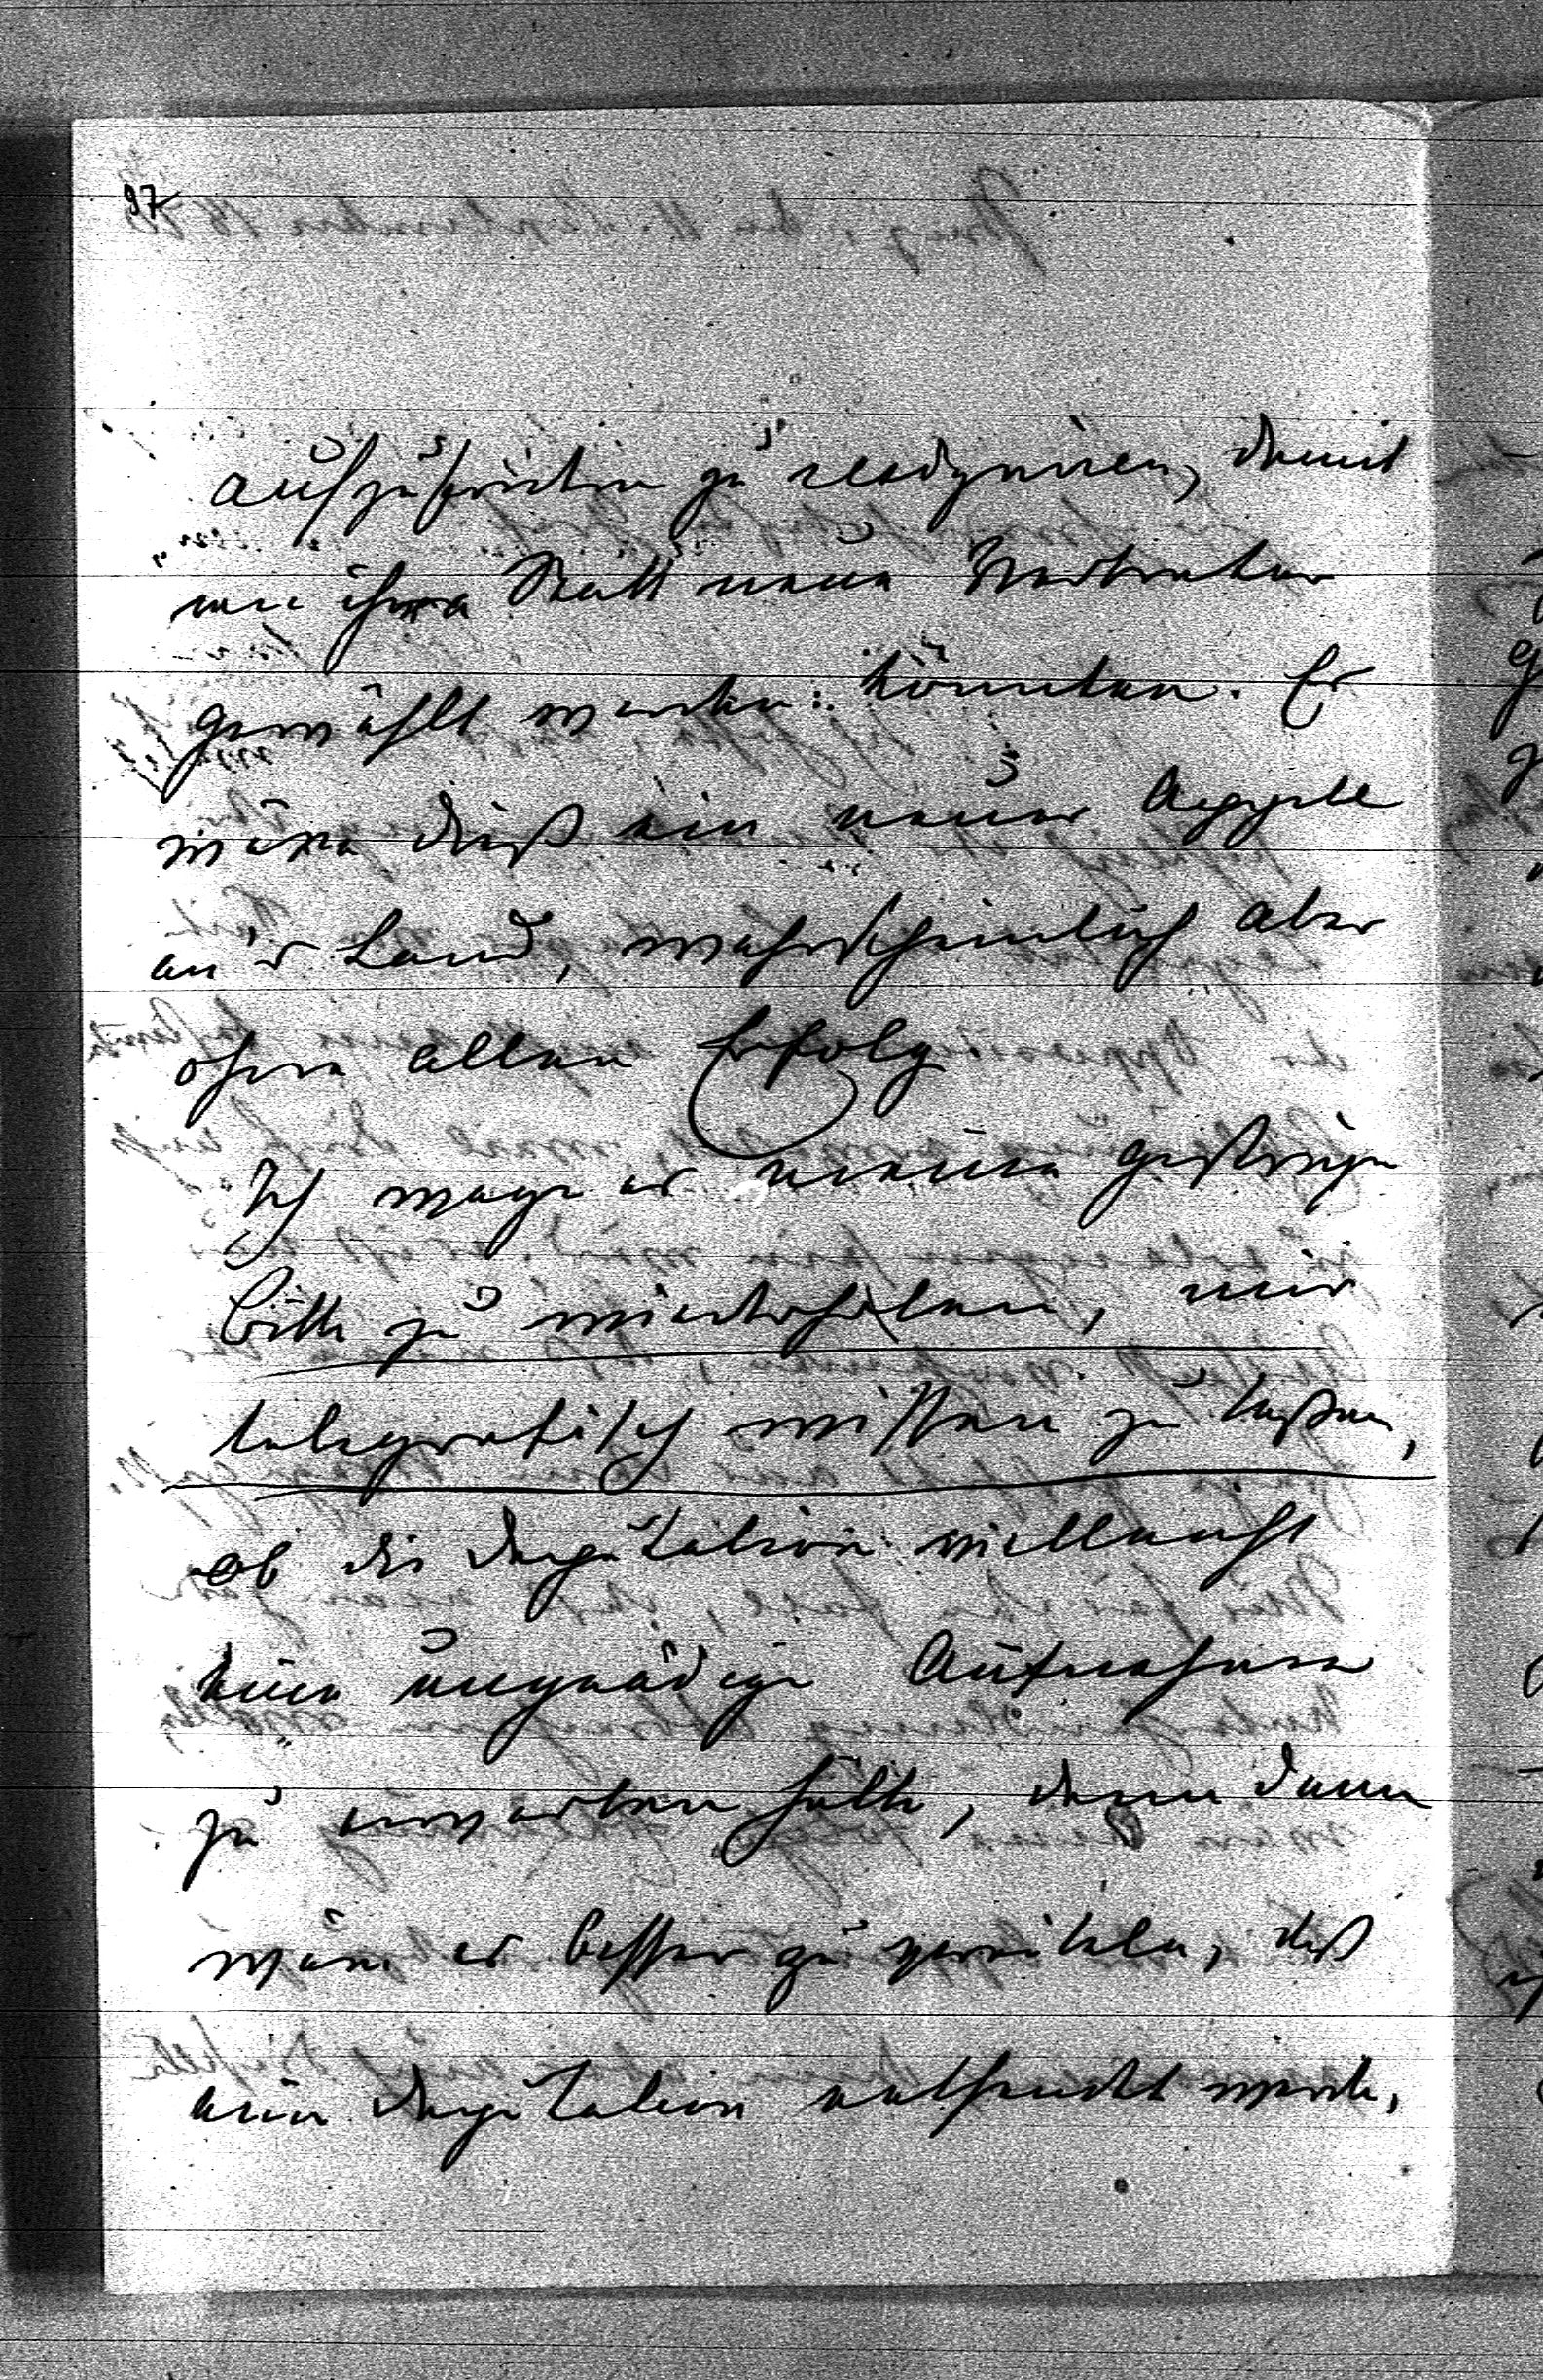 97
aufzufordern zu resigniren, damit
an ihrer Statt neue Vertreter
gewählt werden könnten. Es
wäre dieß ein neuer Appell
an's Land, wahrscheinlich aber
ohne allen Erfolg
Ich wage es meine gestrige
Bitte zu wiederholen, mir
telegrafisch wissen zu laßen,
ob die Deputation vielleicht
keine ungnädige Aufnahme
zu erwarten hätte, denn dann
wäre es besser zu vereiteln, daß
eine Deputation entsendet werde,